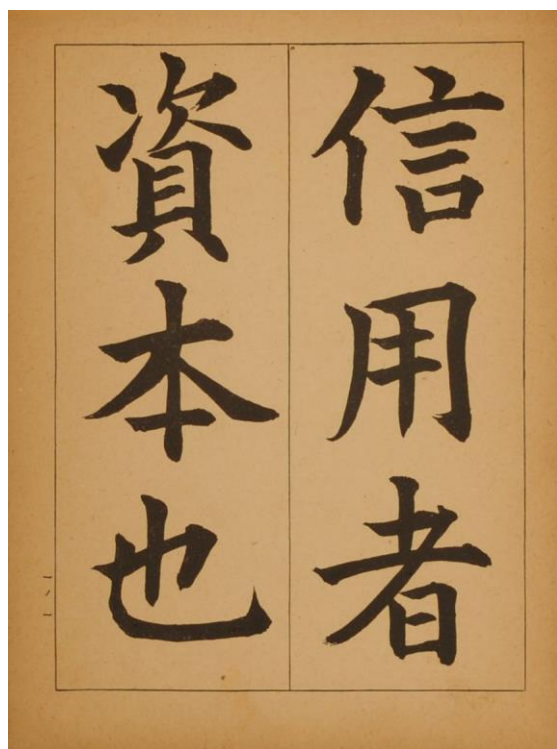 信用者
資本也